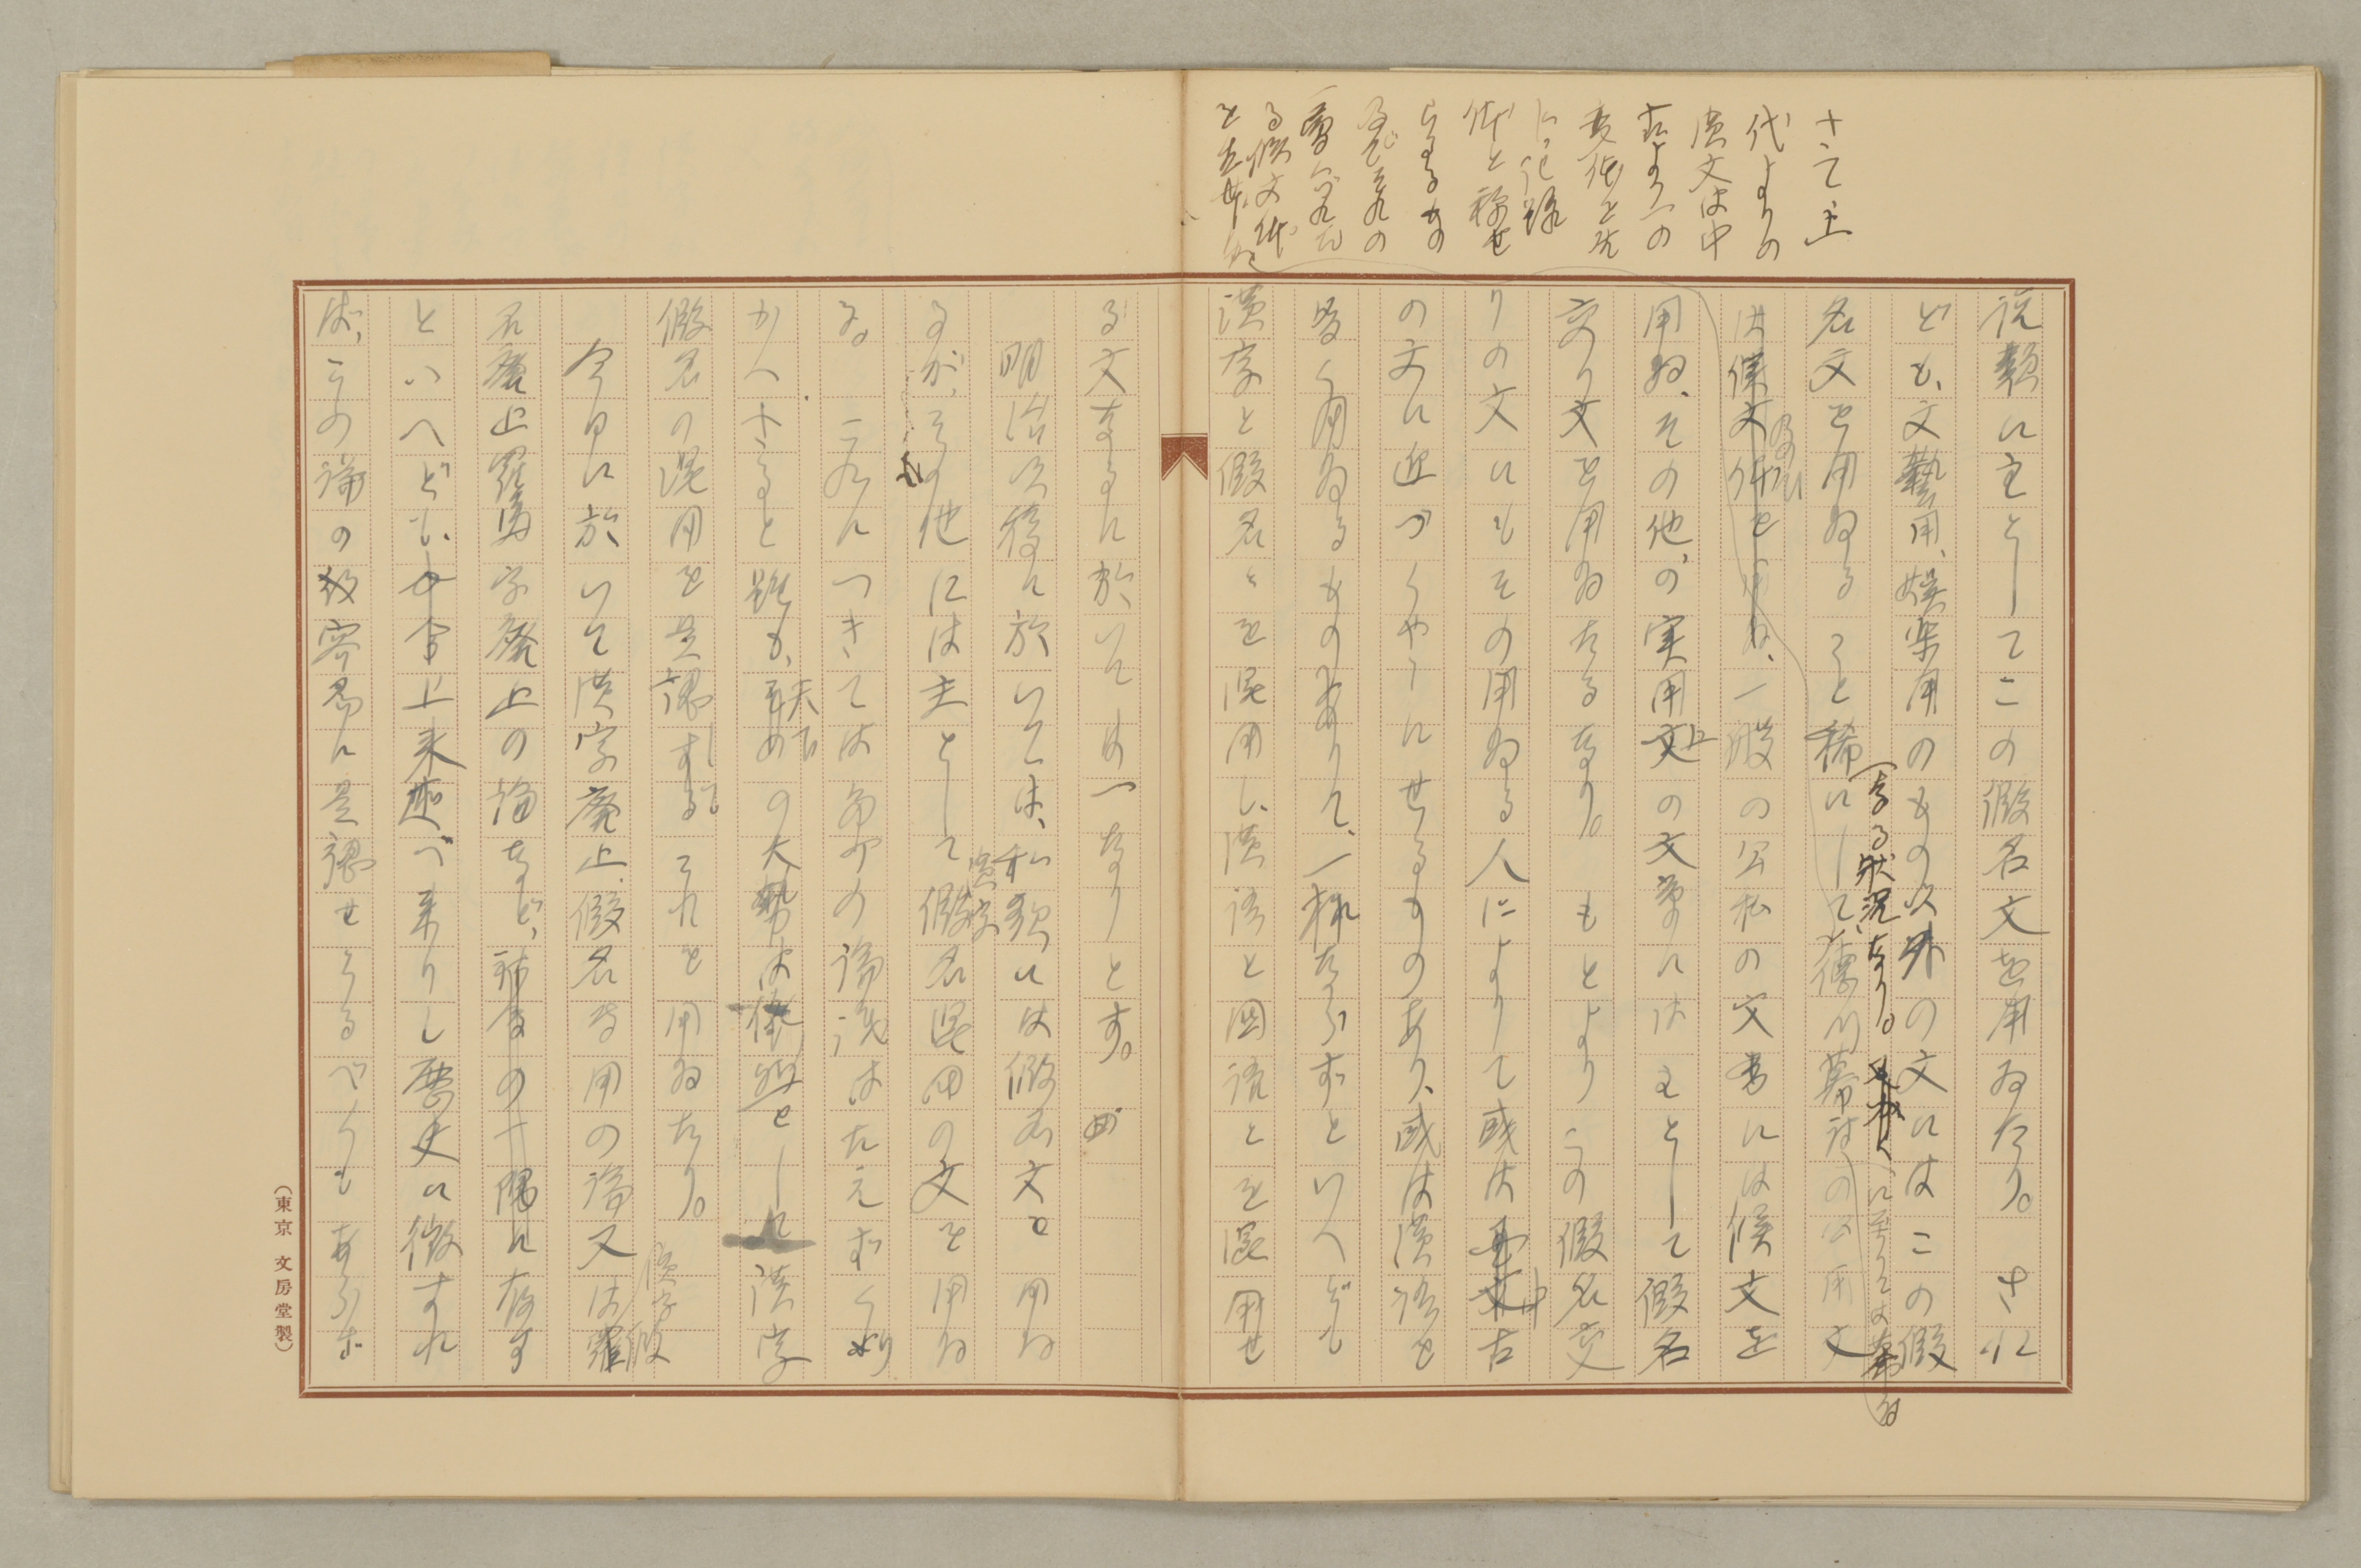 さて王
代よりの
漢文は中
古より一の
変体と成
に記録
体と称せ
らるるもの
及びそれの
一層くづれた
る候文体
を生ぜし
説類に主としてこの假名文を用ゐたり。されど
ども、文藝用、娯楽用のもの以外の文にはこの假
なる状況なり。
に至りては幕府
名文を用ゐること稀にして、徳川幕府の公用文
及び
は候文体を用ゐ、一般の公私の文書には候文を
用ゐ、その他の実用上の文章には主として假名
交り文を用ゐたるなり。もとよりこの假名交
りの文にもその用ゐる人によりて或は中古
の文に近づくやうにせるものあり、或は漢語を
多く用ゐるものありて、一様ならずといへども
漢字と假名とを混用し、漢語と国語とを混用せ
る文なるに於いては一なりとす。
明治以後に於いては、和歌には假名文を用ゐ
漢字
るが、その他には主として假名混用の文を用ゐ
る。これにつきては争の論議はたえず
かへさるると雖も、天下の大勢は依然として漢字
假名の混用を是認してこれを用ゐたり。
漢字假
今日に於いて漢字廃止、假名専用の論又は羅
名廃止羅馬字廃止の論など、の一隅に存す
といへども、上来述べ来りし歴史に徴すれ
ば、この論の容易に是認せらるべくもあらず
(東京 文房堂製)